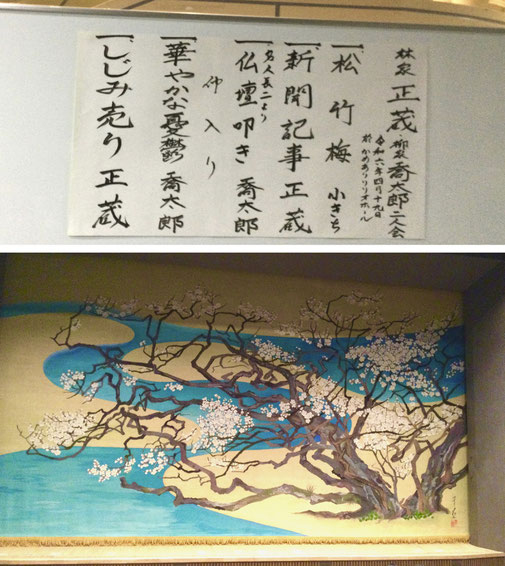 林家 正蔵・柳家 喬太郎 二人会
令和六年四月十九日
於 かめありリリオホール
一 松竹梅 小きち
一 新聞記事 正蔵
名人長二より
一 仏壇叩き 喬太郎
仲入り
一 華やかな憂鬱 喬太郎
一 しじみ売り 正蔵